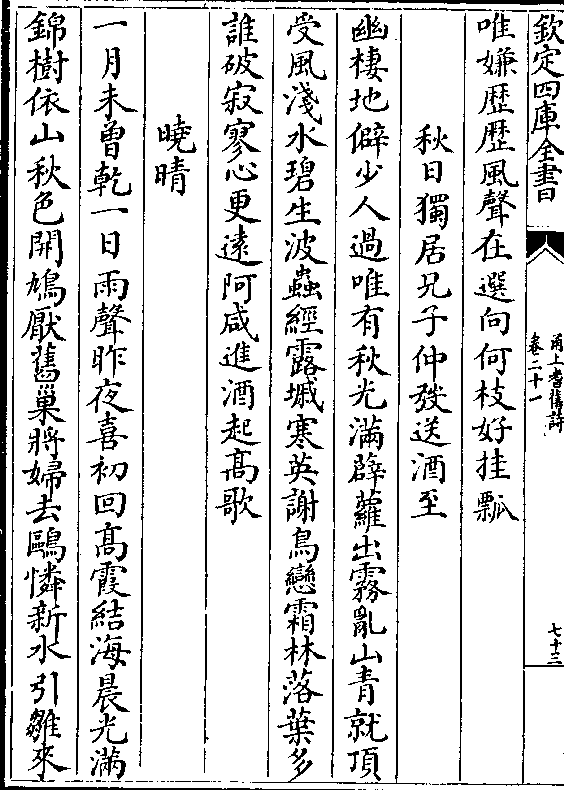 欽定四庫全書
甬上耆舊詩
卷二十一
七十三
唯嫌歴歴風聲在選向何枝好挂瓢
秋日獨居兄子仲發送酒至
幽棲地僻少人過唯有秋光滿薜蘿出霧亂山青就頂
受風淺水碧生波蟲經露堿寒英謝鳥戀霜林落葉多
誰破寂寥心更遠阿咸進酒起髙歌
曉晴
一月未曾乾一日雨聲昨夜喜初回髙霞結海晨光滿
錦樹依山秋色開鳩厭舊巢將婦去鷗憐新水引雛來